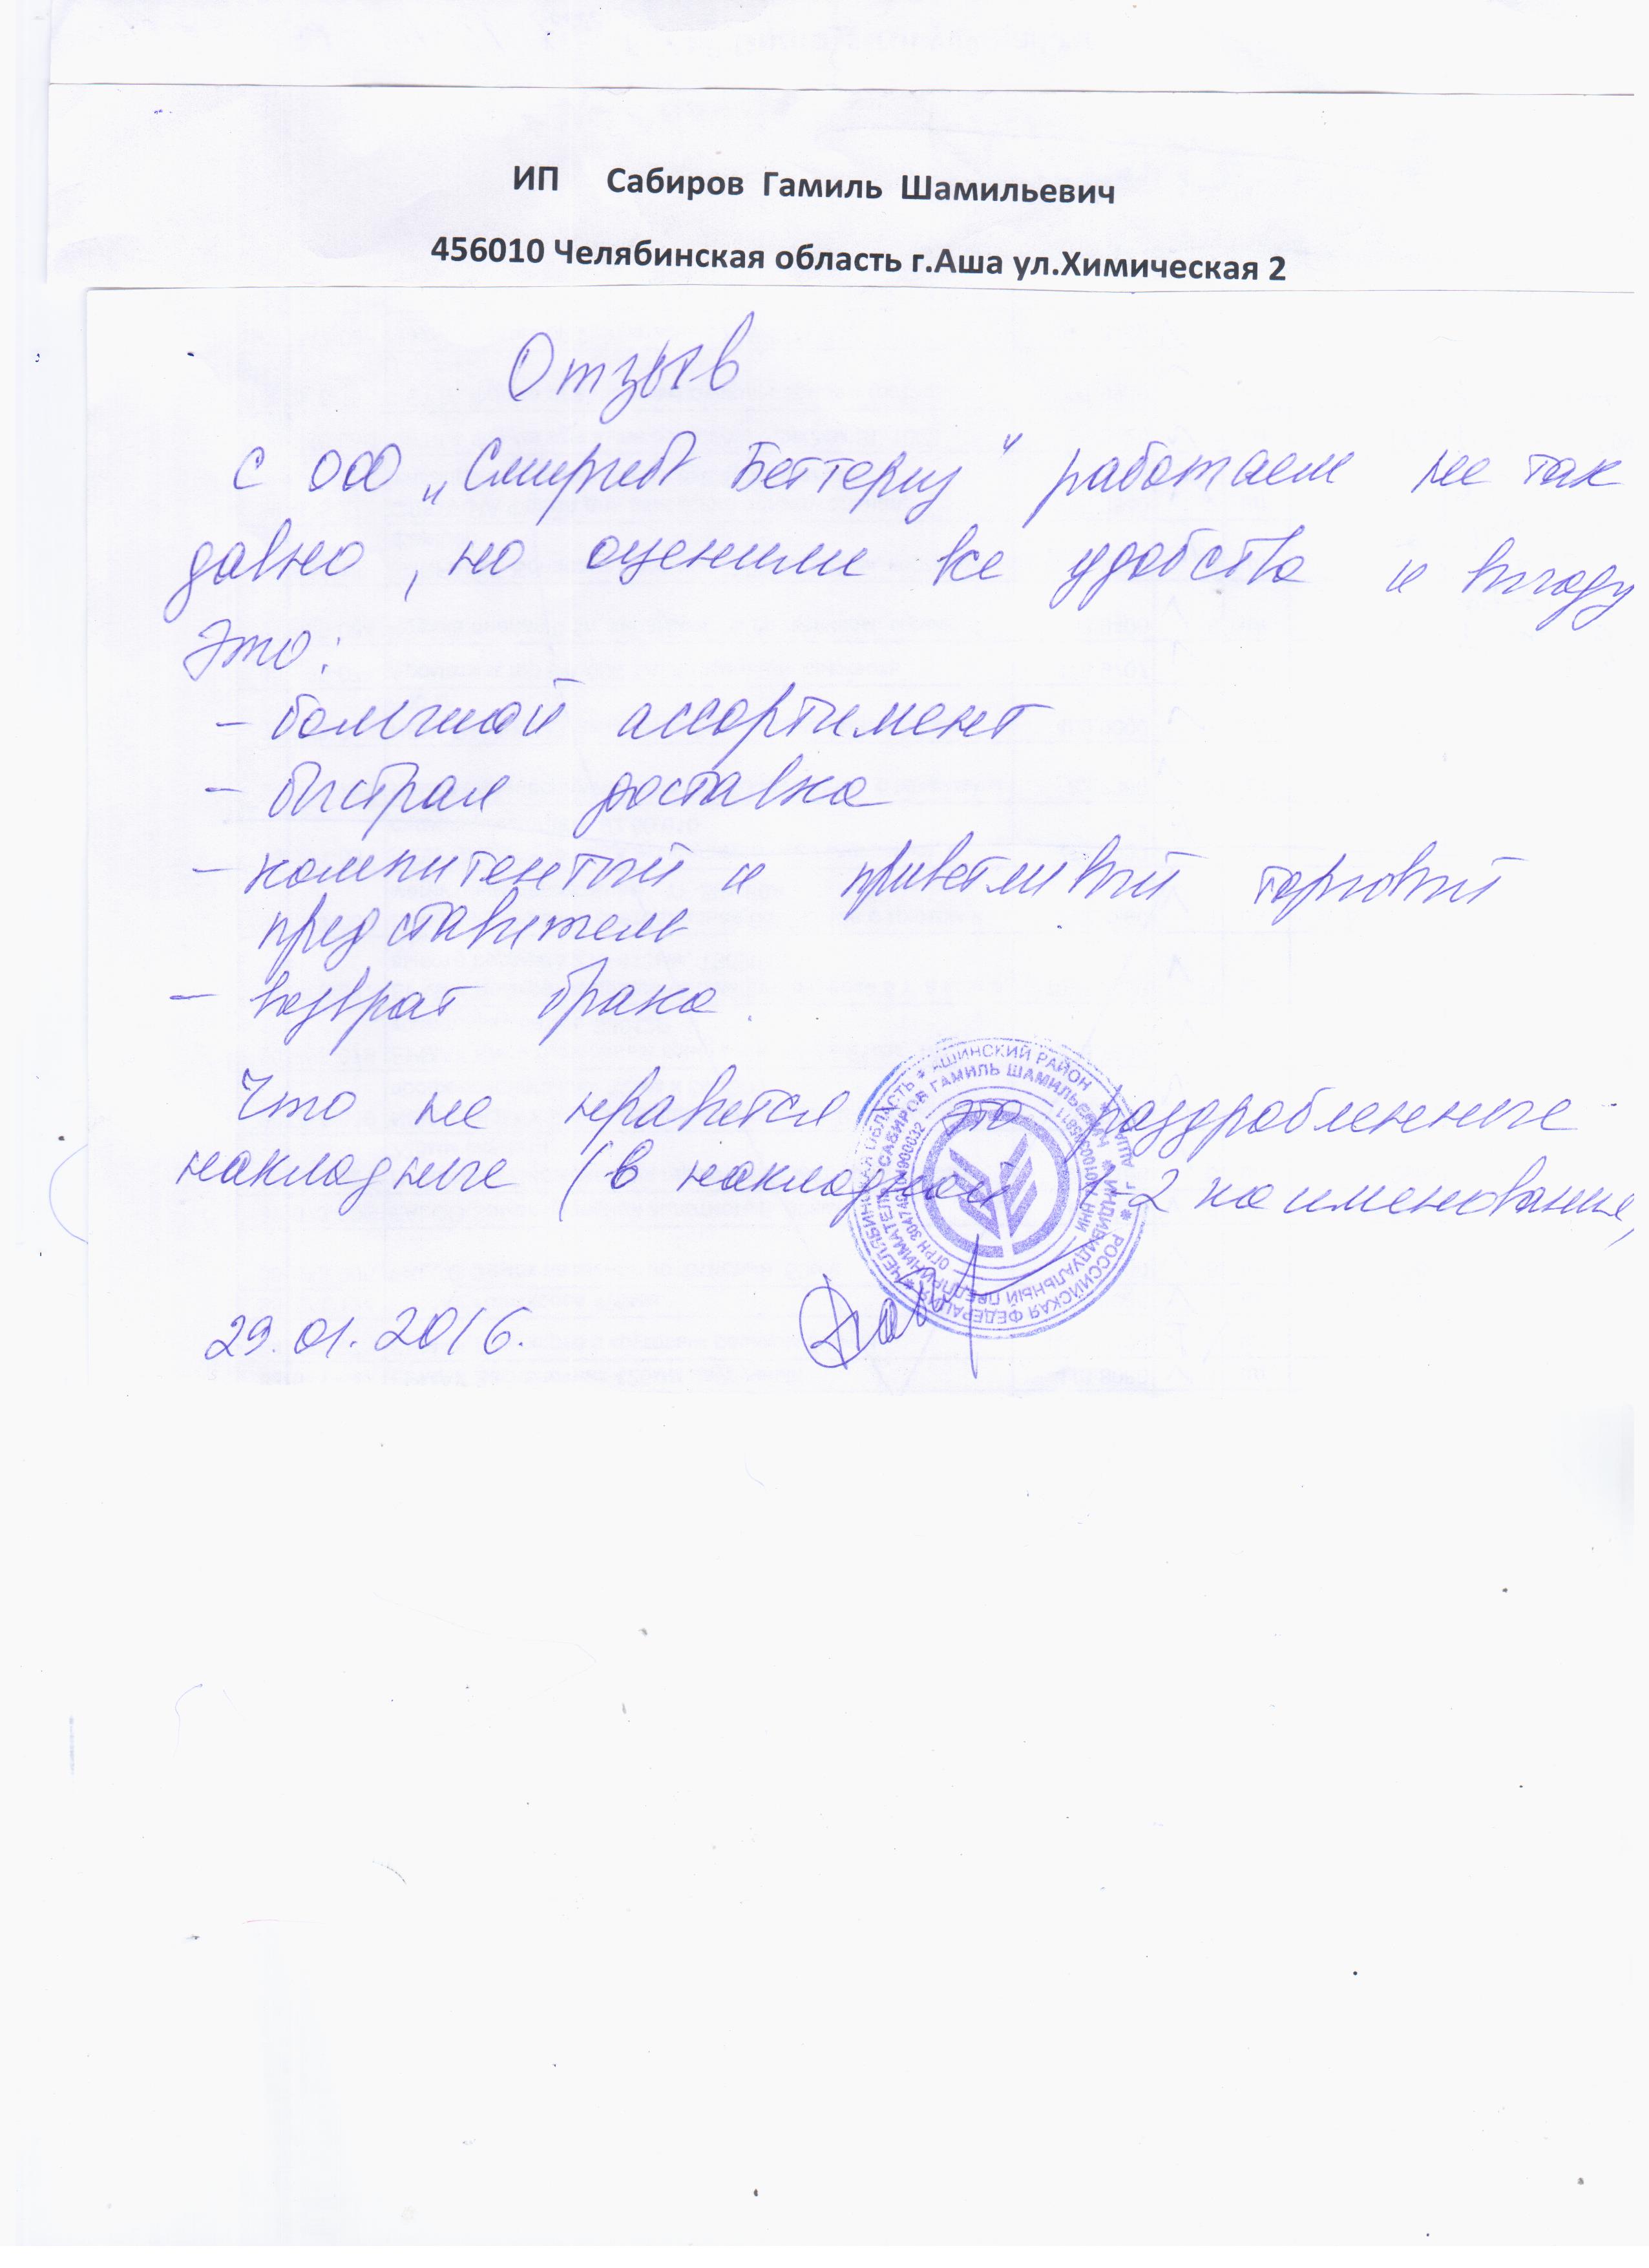 ИП Сабиров Гамиль Шамильевич
456010 Челябинская область г.Аша ул.Химическая 2
Отзыв
С ООО „ Беттериз" работаем не так
давно, но оценили все удобства и выгоду
Это:
- большой ассортимент
- быстрая доставка
- компитентный и приветливый торговый
представитель
- возврат брака.
Что не нравится это раздробленные
накладные (в накладной 1-2 наименования)
29.01.2016.
РОССИЙСКАЯ ФЕДЕРАЦИЯ * ЧЕЛЯБИНСКАЯ ОБЛАСТЬ * АШИНСКИЙ РАЙОН * г. АША
ИНДИВИДУАЛЬНЫЙ ПРЕДПРИНИМАТЕЛЬ САБИРОВ ГАМИЛЬ ШАМИЛЬЕВИЧ
ОГРН
ИНН